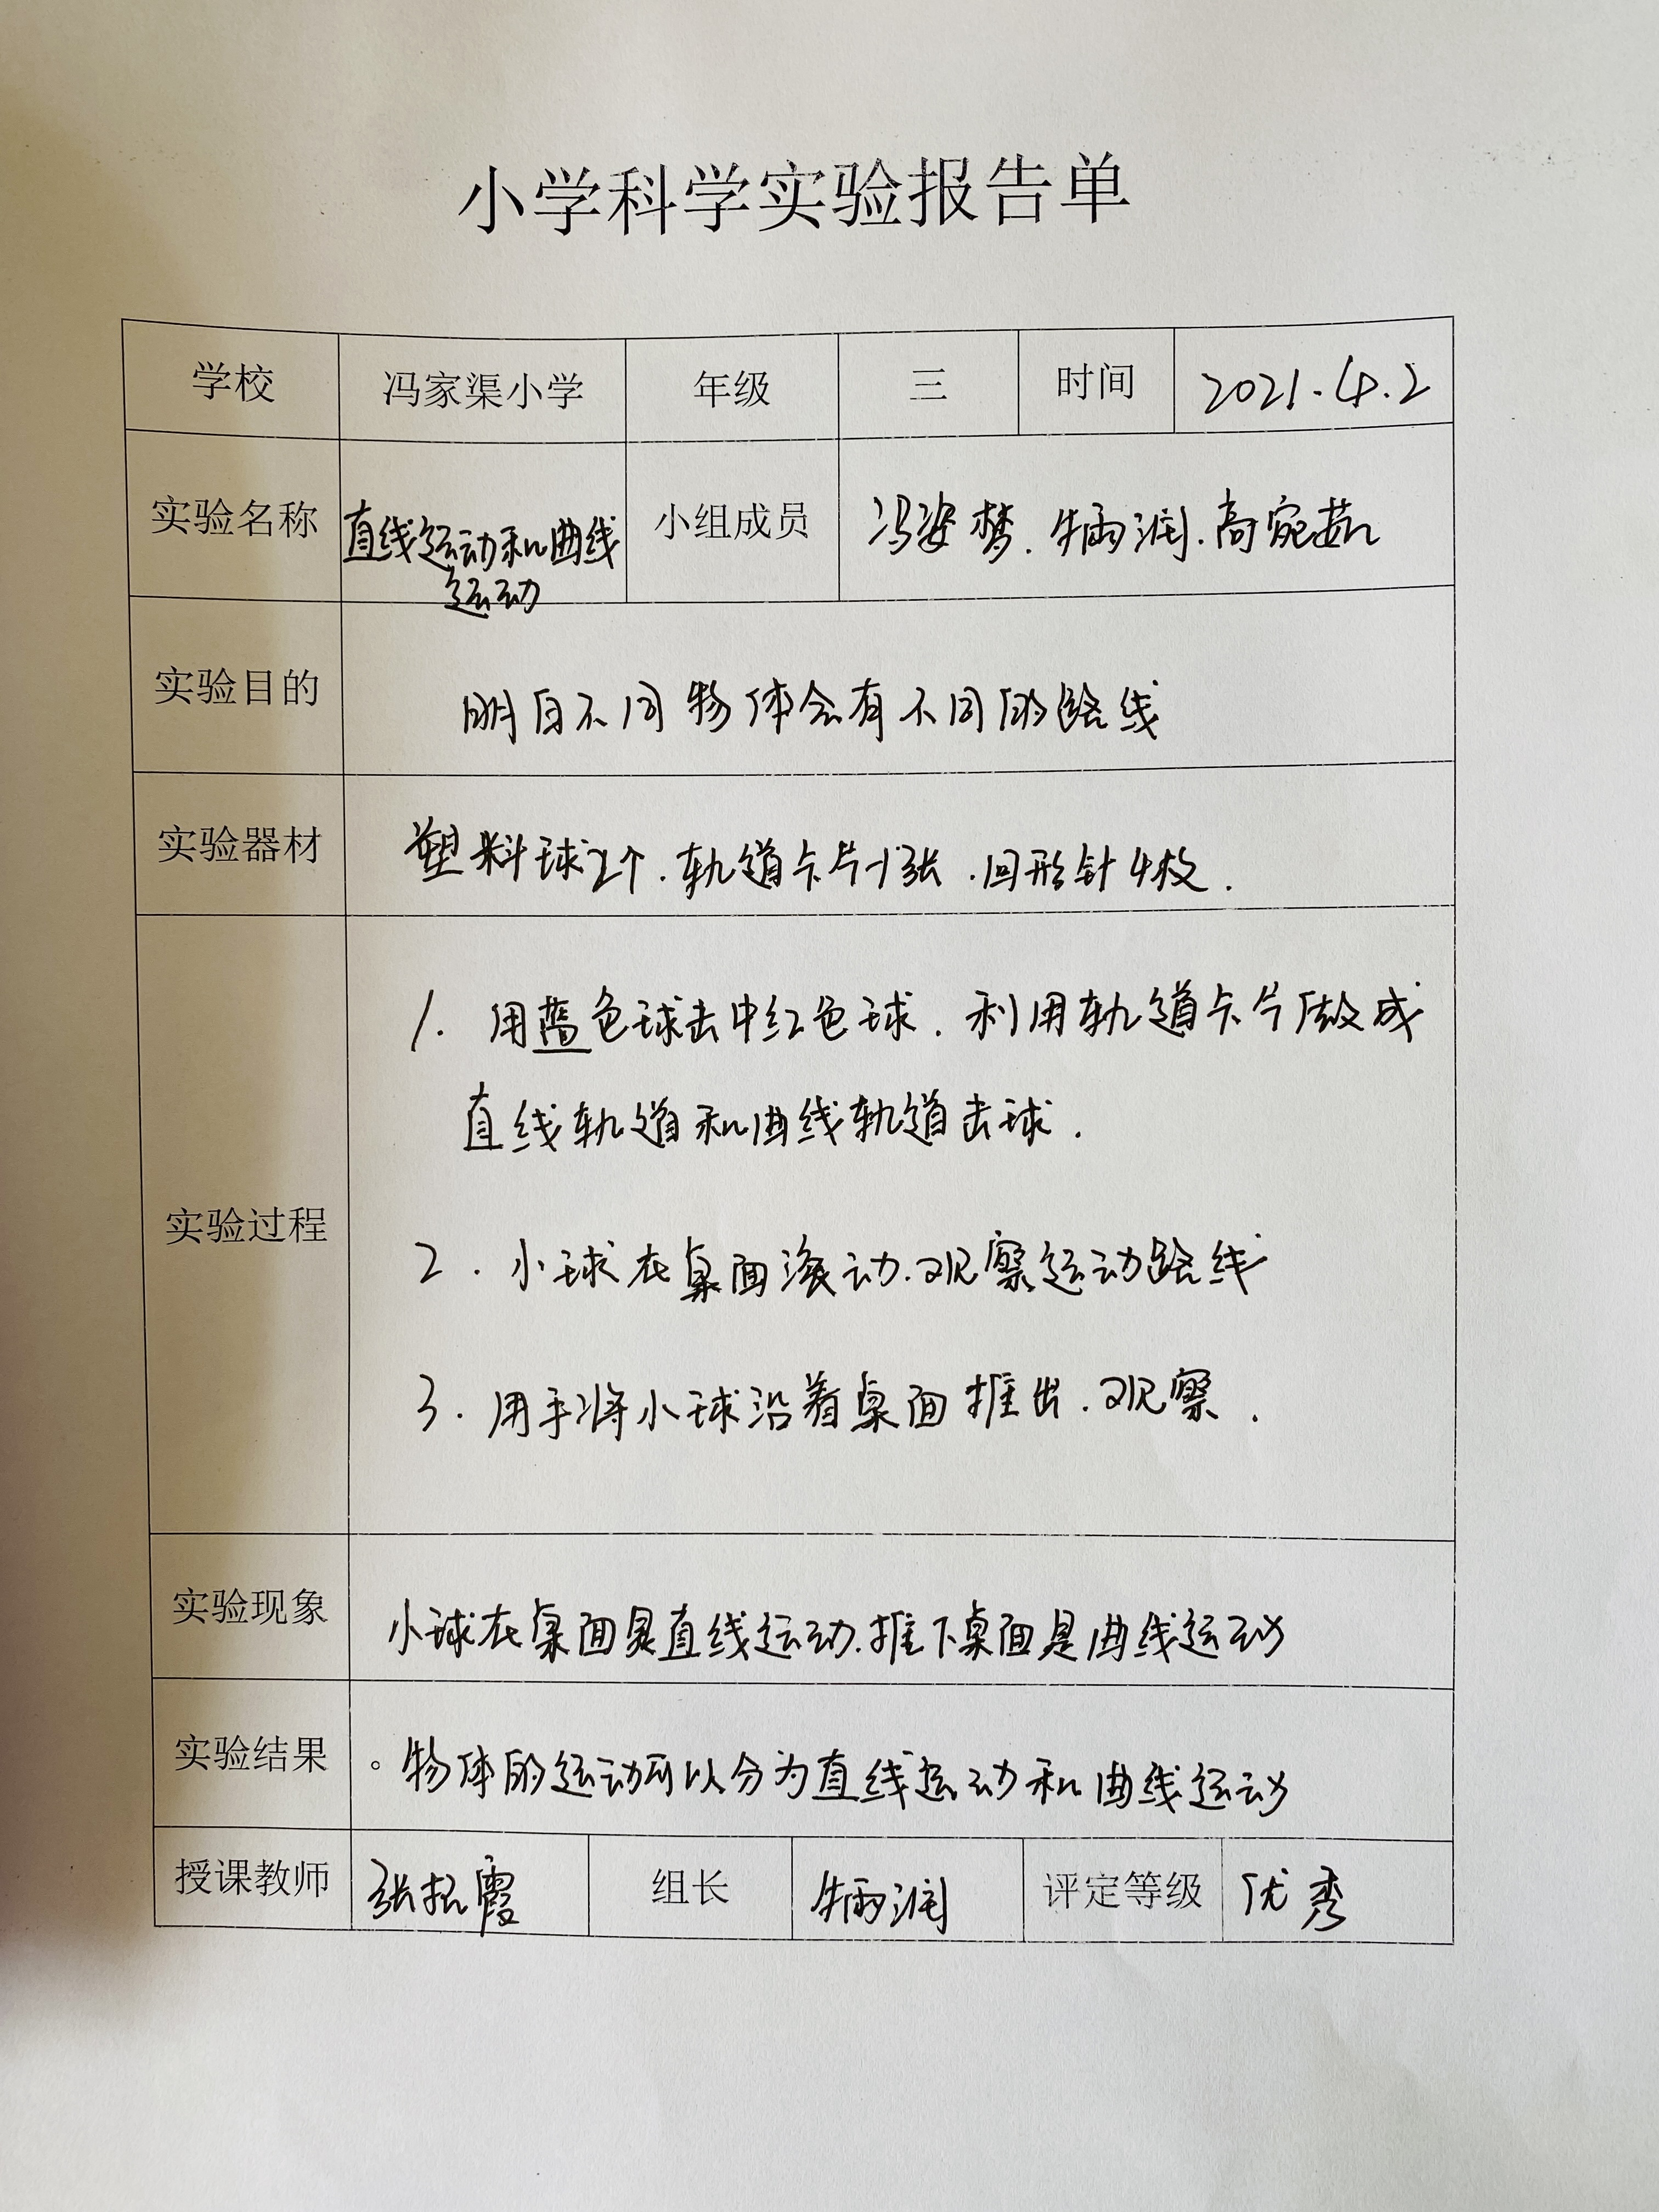 小学科学实验报告单
学校 冯家渠小学 年级 三 时间 2021.4.2
实验名称 直线运动和曲线 小组成员 冯姿梦.牛雨润.高宛茹
运动
实验目的 明白不同物体会有不同的路线
实验器材 塑料球2个.轨道卡片1张.回形针4枚.
1. 用蓝色球击中红色球.利用轨道卡片做成
直线轨道和曲线轨道击球.
实验过程
2. 小球在桌面滚动.观察运动路线
3. 用手将小球沿着桌面推出.观察.
实验现象 小球在桌面是直线运动.推下桌面是曲线运动
实验结果 。物体的运动可以分为直线运动和曲线运动
授课教师 张振霞 组长 牛雨润 评定等级 优秀